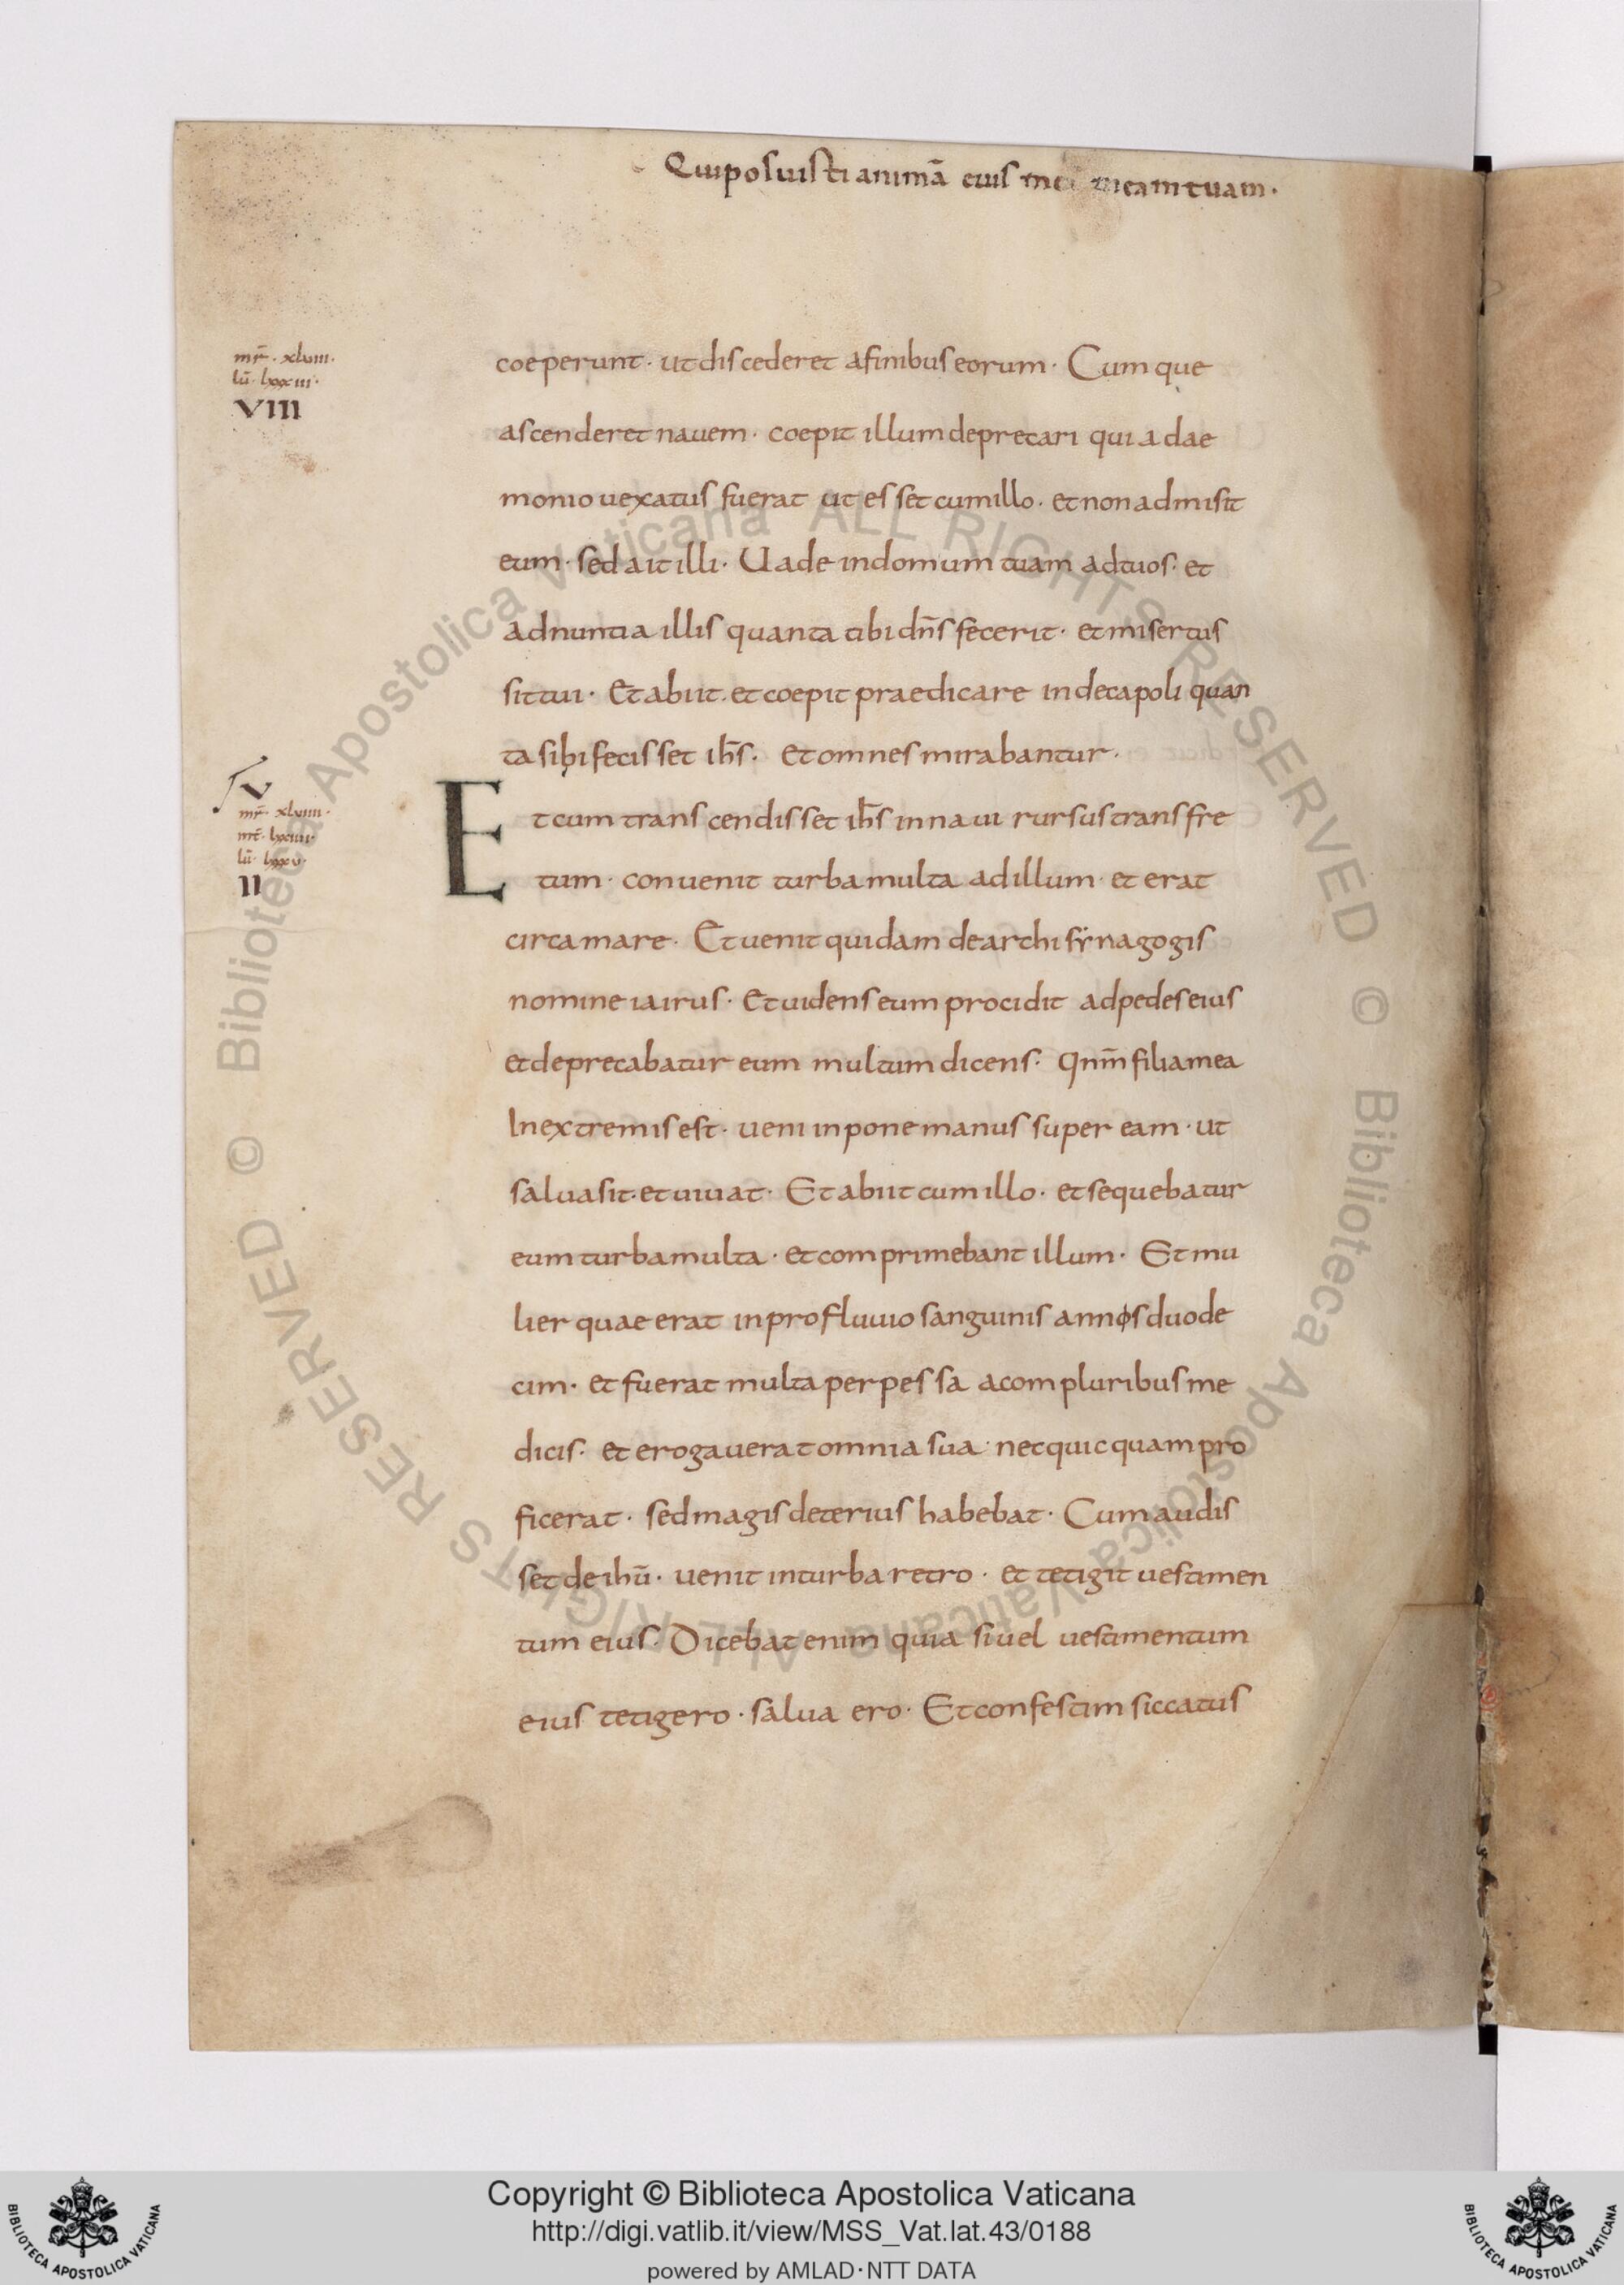 Quiposuisti animā eius meam tuam·
mr̄· xlviii·
lū· lxxxiii·
VIII
coeperunt· ut discederet afinibus eorum· Cumque
ascenderet navem· coepit illum deprecari qui a dae
monio uexatus fuerat ut esset cum illo· et non admisit
eum· sed ait illi· Uade in domum tuam ad tuos· et
adnuntia illis quanta tibi dn̄s fecerit· et misertus
sit tui· Et abiit· et coepit praedicare in decapoli quan
ta sibi fecisset ih̄s· et omnes mirabantur·
mr̄· xlviiii·
mt̄· lxxiiii·
lū· lxxxv·
II
Et cum transcendisset ih̄s in naui rursus trans fre
tum· conuenit turba multa ad illum· et erat
circa mare· Et uenit quidam de archisynagogis
nomine iairus· Et uidens eum procidit ad pedes eius
et deprecabatur eum multum dicens· Qnm̄ filia mea
In extremis est· ueni inpone manus super eam· ut
salua sit· et uiuat· Et abiit cum illo· et sequebatur
eum turba multa· et comprimebant illum· Et mu
lier quae erat in profluuio sanguinis annos duode
cim· et fuerat multa perpessa a compluribus me
dicis· et erogauerat omnia sua· nec quicquam pro
ficerat· sed magis deterius habebat· Cum audis
set de ihū· uenit in turba retro· et tetigit uestimen
tum eius· Dicebat enim quia si uel uestimentum
eius tetigero· salua ero· Et confestim siccatus
Biblioteca Apostolica Vaticana ALL RIGHTS RESERVED © Biblioteca Apostolica Vaticana ALL RIGHTS RESERVED ©
Copyright © Biblioteca Apostolica Vaticana
http://digi.vatlib.it/view/MSS_Vat.lat.43/0188
powered by AMLAD·NTT DATA
BIBLIOTECA APOSTOLICA VATICANA
BIBLIOTECA APOSTOLICA VATICANA